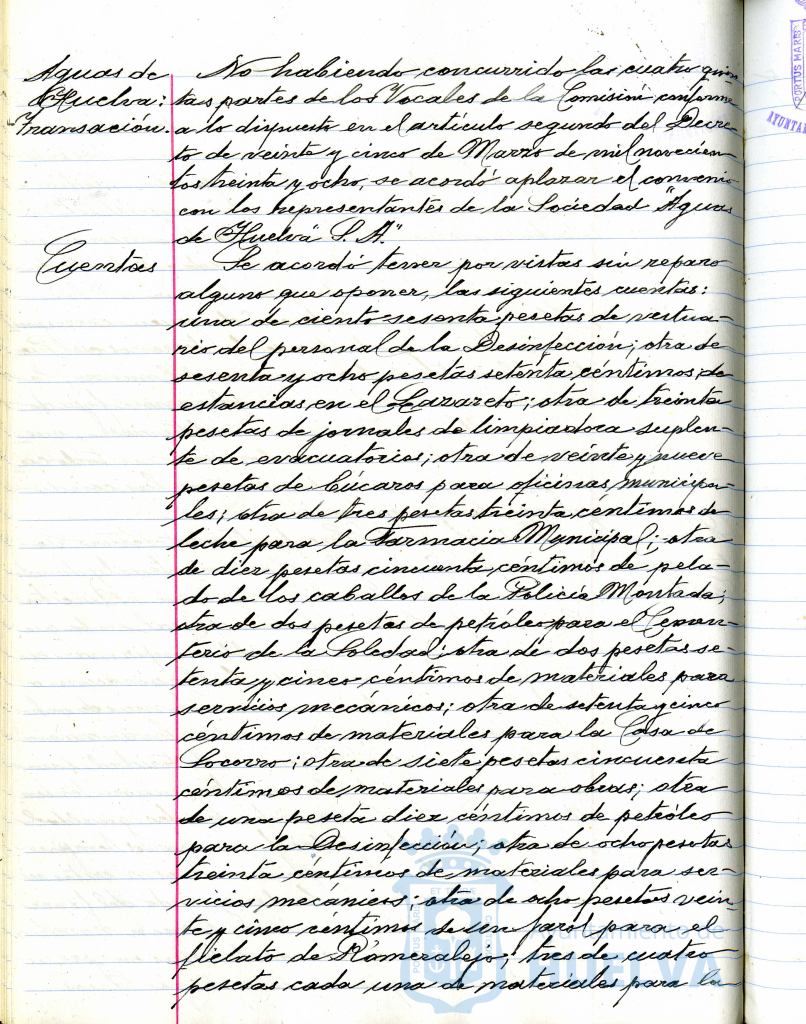 Aguas de
Huelva:
Transación.
No habiendo concurrido las cuatro quin-
tas partes de los Vocales de la Comisión conforme
a lo dispuesto en el artículo segundo del Decre-
to de veinte y cinco de Marzo de mil novecien-
tos treinta y ocho, se acordó aplazar el convenio
con los representantes de la Sociedad "Aguas
de Huelva S. A."
Cuentas
Se acordó tener por vistas sin reparo
alguno que oponer, las siguientes cuentas:
una de ciento sesenta pesetas de vestua-
rio del personal de la Desinfección; otra de
sesenta y ocho pesetas setenta céntimos de
estancias en el Lazareto; otra de treinta
pesetas de jornales de limpiadora suplen-
te de evacuatorios; otra de veinte y nueve
pesetas de búcaros para oficinas municipa-
les; otra de tres pesetas treinta céntimos de
leche para la Farmacia Municipal; otra
de diez pesetas cincuenta céntimos de pela-
do de los caballos de la Policía Montada;
otra de dos pesetas de petróleo para el Cemen-
terio de la Soledad; otra de dos pesetas se-
tenta y cinco céntimos de materiales para
servicios mecánicos; otra de setenta y cinco
céntimos de materiales para la Casa de
Socorro; otra de siete pesetas cincuenta
céntimos de materiales para obras; otra
de una peseta diez céntimos de petróleo
para la Desinfección; otra de ocho pesetas
treinta céntimos de materiales para ser-
vicios mecánicos; otra de ocho pesetas vein-
te y cinco céntimos de un farol para el
fielato de Romeralejo; tres de cuatro
pesetas cada una de materiales para la
PORTUS MARIS
AYUNTA
Ayuntamiento de
HUELVA